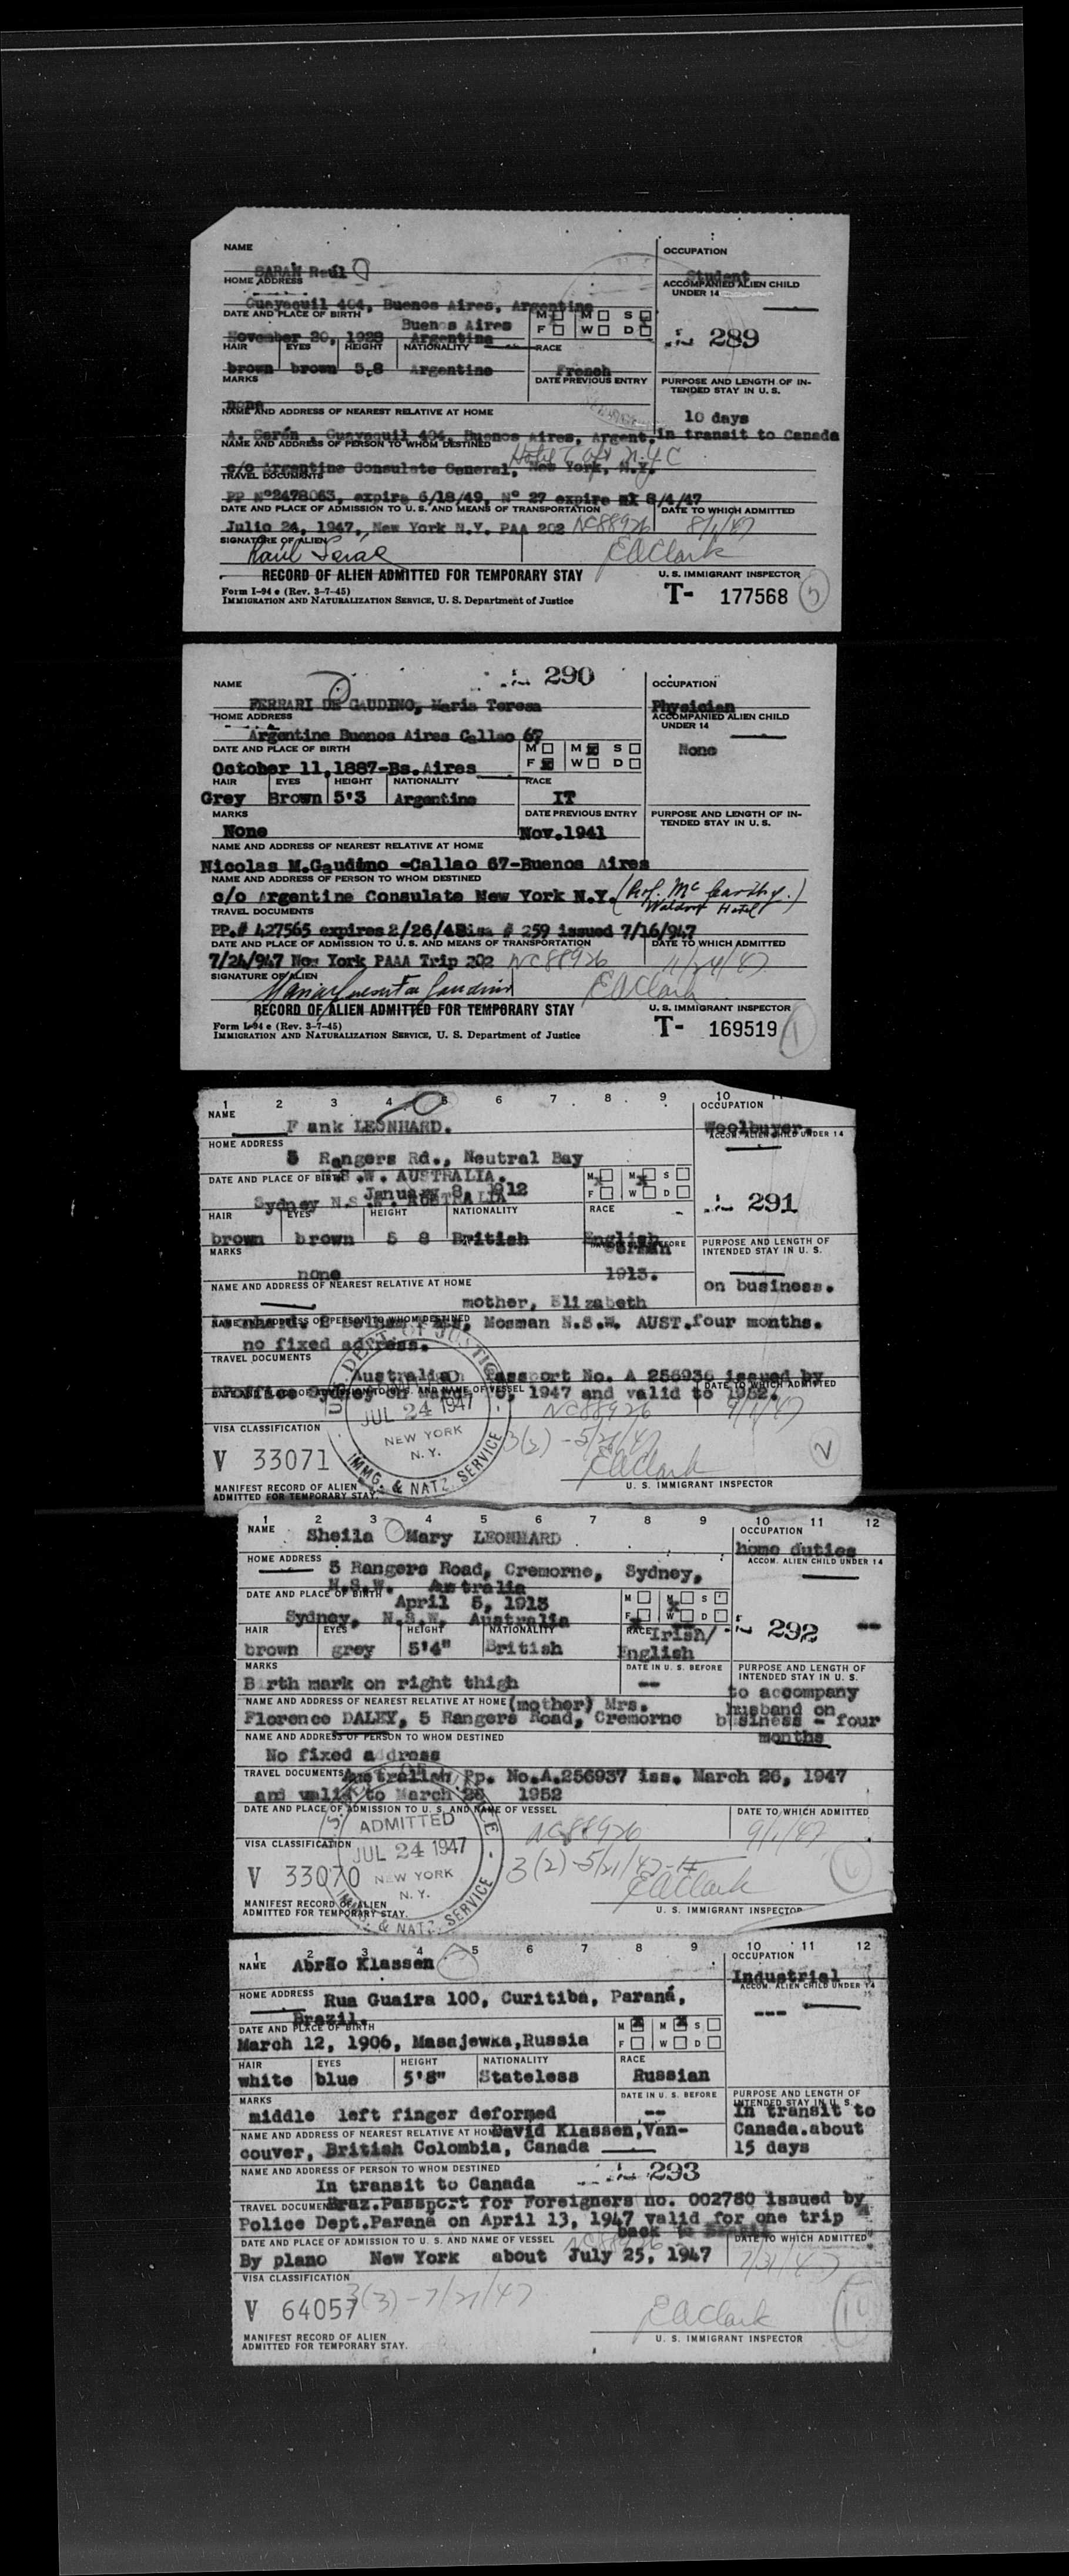 NAME
OCCUPATION
SARAN Raúl
Student
HOME ADDRESS
ACCOMPANIED ALIEN CHILD
UNDER 14
Guayaquil 404, Buenos Aires, Argentina
DATE AND PLACE OF BIRTH
M M S
Buenos Aires
F W D
289
November 20, 1928 Argentina
HAIR EYES HEIGHT NATIONALITY RACE
brown brown 5,8 Argentine French
MARKS DATE PREVIOUS ENTRY PURPOSE AND LENGTH OF IN-
TENDED STAY IN U. S.
none
NAME AND ADDRESS OF NEAREST RELATIVE AT HOME
10 days
A. Serán, Guayaquil 404, Buenos Aires, Argent. in transit to Canada
NAME AND ADDRESS OF PERSON TO WHOM DESTINED
c/o Argentine Consulate General, New York, N.Y.
TRAVEL DOCUMENTS
PP Nº2478063, expira 6/18/49, Nº 27 expire 8/4/47
DATE AND PLACE OF ADMISSION TO U. S. AND MEANS OF TRANSPORTATION DATE TO WHICH ADMITTED
Julio 24, 1947, New York N.Y. PAA 202 NC88926
SIGNATURE OF ALIEN
EAClark
RECORD OF ALIEN ADMITTED FOR TEMPORARY STAY U. S. IMMIGRANT INSPECTOR
Form I-94 e (Rev. 3-7-45)
IMMIGRATION AND NATURALIZATION SERVICE, U. S. Department of Justice
T- 177568 5
290
NAME OCCUPATION
FERRARI DE GAUDINO, Maria Teresa Physician
HOME ADDRESS ACCOMPANIED ALIEN CHILD
UNDER 14
Argentine Buenos Aires Callao 67
DATE AND PLACE OF BIRTH M M S None
October 11, 1887-Bs. Aires F W D
HAIR EYES HEIGHT NATIONALITY RACE
Grey Brown 5'3 Argentine IT
MARKS DATE PREVIOUS ENTRY PURPOSE AND LENGTH OF IN-
TENDED STAY IN U. S.
None Nov. 1941
NAME AND ADDRESS OF NEAREST RELATIVE AT HOME
Nicolas M. Gaudino -Callao 67-Buenos Aires
NAME AND ADDRESS OF PERSON TO WHOM DESTINED
c/o Argentine Consulate New York N.Y. (Prof. Mc Carthy.)
Waldorf Hotel
TRAVEL DOCUMENTS
PP.# 427565 expires 2/26/48 # 259 issued 7/16/947
DATE AND PLACE OF ADMISSION TO U. S. AND MEANS OF TRANSPORTATION DATE TO WHICH ADMITTED
7/24/947 New York PAAA Trip 202 NC88926
SIGNATURE OF ALIEN
EAClark
RECORD OF ALIEN ADMITTED FOR TEMPORARY STAY U. S. IMMIGRANT INSPECTOR
Form I-94 e (Rev. 3-7-45)
IMMIGRATION AND NATURALIZATION SERVICE, U. S. Department of Justice
T- 169519 1
1 2 3 4 5 6 7 8 9 10 11
NAME OCCUPATION
F ank LEONHARD. Woolbuyer.
HOME ADDRESS ACCOM. ALIEN CHILD UNDER 14
5 Rangers Rd., Neutral Bay
N.S.W. AUSTRALIA.
DATE AND PLACE OF BIRTH M M S
January 8, 1912
F W D
291
Sydney N.S.W. AUSTRALIA
HAIR EYES HEIGHT NATIONALITY RACE
brown brown 5 8 British English
German
MARKS PURPOSE AND LENGTH OF
INTENDED STAY IN U. S.
none 1913.
NAME AND ADDRESS OF NEAREST RELATIVE AT HOME
on business.
mother, Elizabeth
NAME AND ADDRESS OF PERSON TO WHOM DESTINED
Mosman N.S.W. AUST. four months.
no fixed address.
TRAVEL DOCUMENTS
Australian Passport No. A 256936 issued by
DATE TO WHICH ADMITTED
1947 and valid to 1952.
U.S. DEPT. OF JUSTICE
JUL 24 1947
NEW YORK
N. Y.
IMMG. & NATZ. SERVICE
NC88926 9/1/47
VISA CLASSIFICATION
3(2) - 5/21/47
V 33071
EAClark
2
MANIFEST RECORD OF ALIEN
ADMITTED FOR TEMPORARY STAY.
U. S. IMMIGRANT INSPECTOR
1 2 3 4 5 6 7 8 9 10 11 12
NAME OCCUPATION
Sheila Mary LEONHARD home duties
HOME ADDRESS ACCOM. ALIEN CHILD UNDER 14
5 Rangers Road, Cremorne, Sydney,
N.S.W. Australia
DATE AND PLACE OF BIRTH M M S
April 5, 1913
F W D
292 --
Sydney, N.S.W. Australia
HAIR EYES HEIGHT NATIONALITY RACE
Irish/
brown grey 5'4" British English
MARKS DATE IN U. S. BEFORE PURPOSE AND LENGTH OF
INTENDED STAY IN U. S.
Birth mark on right thigh -- to accompany
NAME AND ADDRESS OF NEAREST RELATIVE AT HOME (mother) Mrs. husband on
Florence DALEY, 5 Rangers Road, Cremorne business - four
NAME AND ADDRESS OF PERSON TO WHOM DESTINED months
No fixed address
TRAVEL DOCUMENTS Australian Pp. No.A.256937 iss. March 26, 1947
and valid to March 26 1952
DATE AND PLACE OF ADMISSION TO U. S. AND NAME OF VESSEL DATE TO WHICH ADMITTED
ADMITTED
JUL 24 1947
NEW YORK
N. Y.
& NATZ. SERVICE
NC88926 9/1/47
VISA CLASSIFICATION
3(2)-5/21/47
V 33070
EAClark
MANIFEST RECORD OF ALIEN
ADMITTED FOR TEMPORARY STAY.
U. S. IMMIGRANT INSPECTOR
1 2 3 4 5 6 7 8 9 10 11 12
NAME OCCUPATION
Abrão Klassen Industrial
HOME ADDRESS ACCOM. ALIEN CHILD UNDER 14
Rua Guaira 100, Curitiba, Paraná, ---
Brazil.
DATE AND PLACE OF BIRTH M M S
March 12, 1906, Masajewka, Russia F W D
HAIR EYES HEIGHT NATIONALITY RACE
white blue 5'8" Stateless Russian
MARKS DATE IN U. S. BEFORE PURPOSE AND LENGTH OF
INTENDED STAY IN U. S.
middle left finger deformed -- In transit to
NAME AND ADDRESS OF NEAREST RELATIVE AT HOME David Klassen, Van- Canada. about
couver, British Colombia, Canada 15 days
NAME AND ADDRESS OF PERSON TO WHOM DESTINED 293
In transit to Canada
TRAVEL DOCUMENTS Braz. Passport for Foreigners no. 002780 issued by
Police Dept. Paraná on April 13, 1947 valid for one trip
back to Brazil
DATE AND PLACE OF ADMISSION TO U. S. AND NAME OF VESSEL DATE TO WHICH ADMITTED
By plane New York about July 25, 1947 7/31/47
VISA CLASSIFICATION
3(3) - 7/21/47
V 64057
EAClark
MANIFEST RECORD OF ALIEN
ADMITTED FOR TEMPORARY STAY.
U. S. IMMIGRANT INSPECTOR